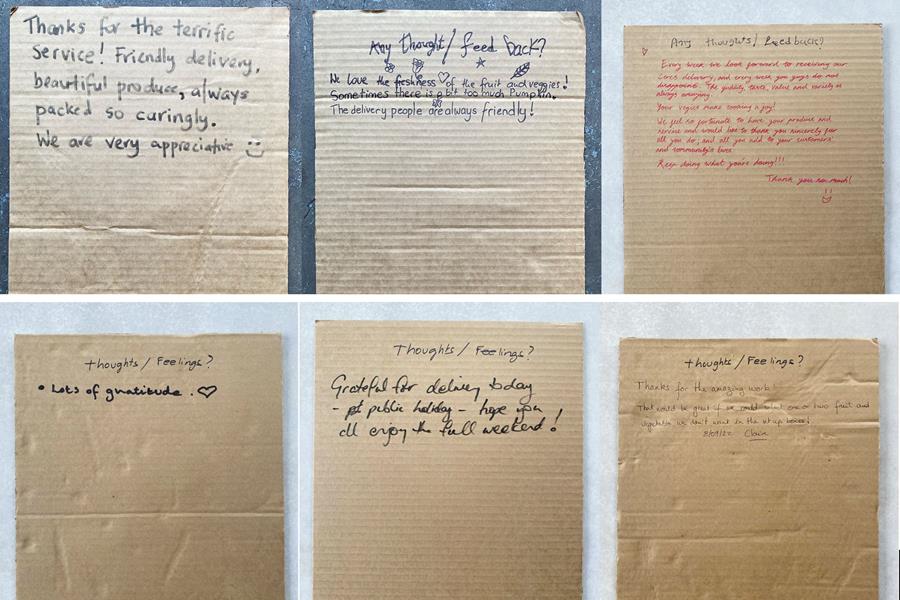 Thanks for the terrific
service! Friendly delivery,
beautiful produce, always
packed so caringly.
We are very appreciative
Any thought/ feed back?
We love the freshness of the fruit and veggies!
Sometimes there is a bit too much Pumpkin.
The delivery people are always friendly!
Any thoughts/ feedback?
Every week we look forward to receiving our
Ceres delivery, and every week you guys do not
disappoint. The quality, taste, value and variety is
always amazing.
Your vegies make cooking a joy!
We feel so fortunate to have your produce and
service and would like to thank you sincerely for
all you do, and all you add to your customers'
and community's lives
Keep doing what you're doing!!!
Thank you so much!
Thoughts / Feelings?
• Lots of gratitude.
Thoughts / Feelings?
Grateful for delivery today
- public holiday - hope you
all enjoy the full weekend!
Thoughts / Feelings?
Thanks for the amazing work!
That would be great if we could select one or two fruit and
vegetable we don't want in the set up boxes!
8/09/22 Claire